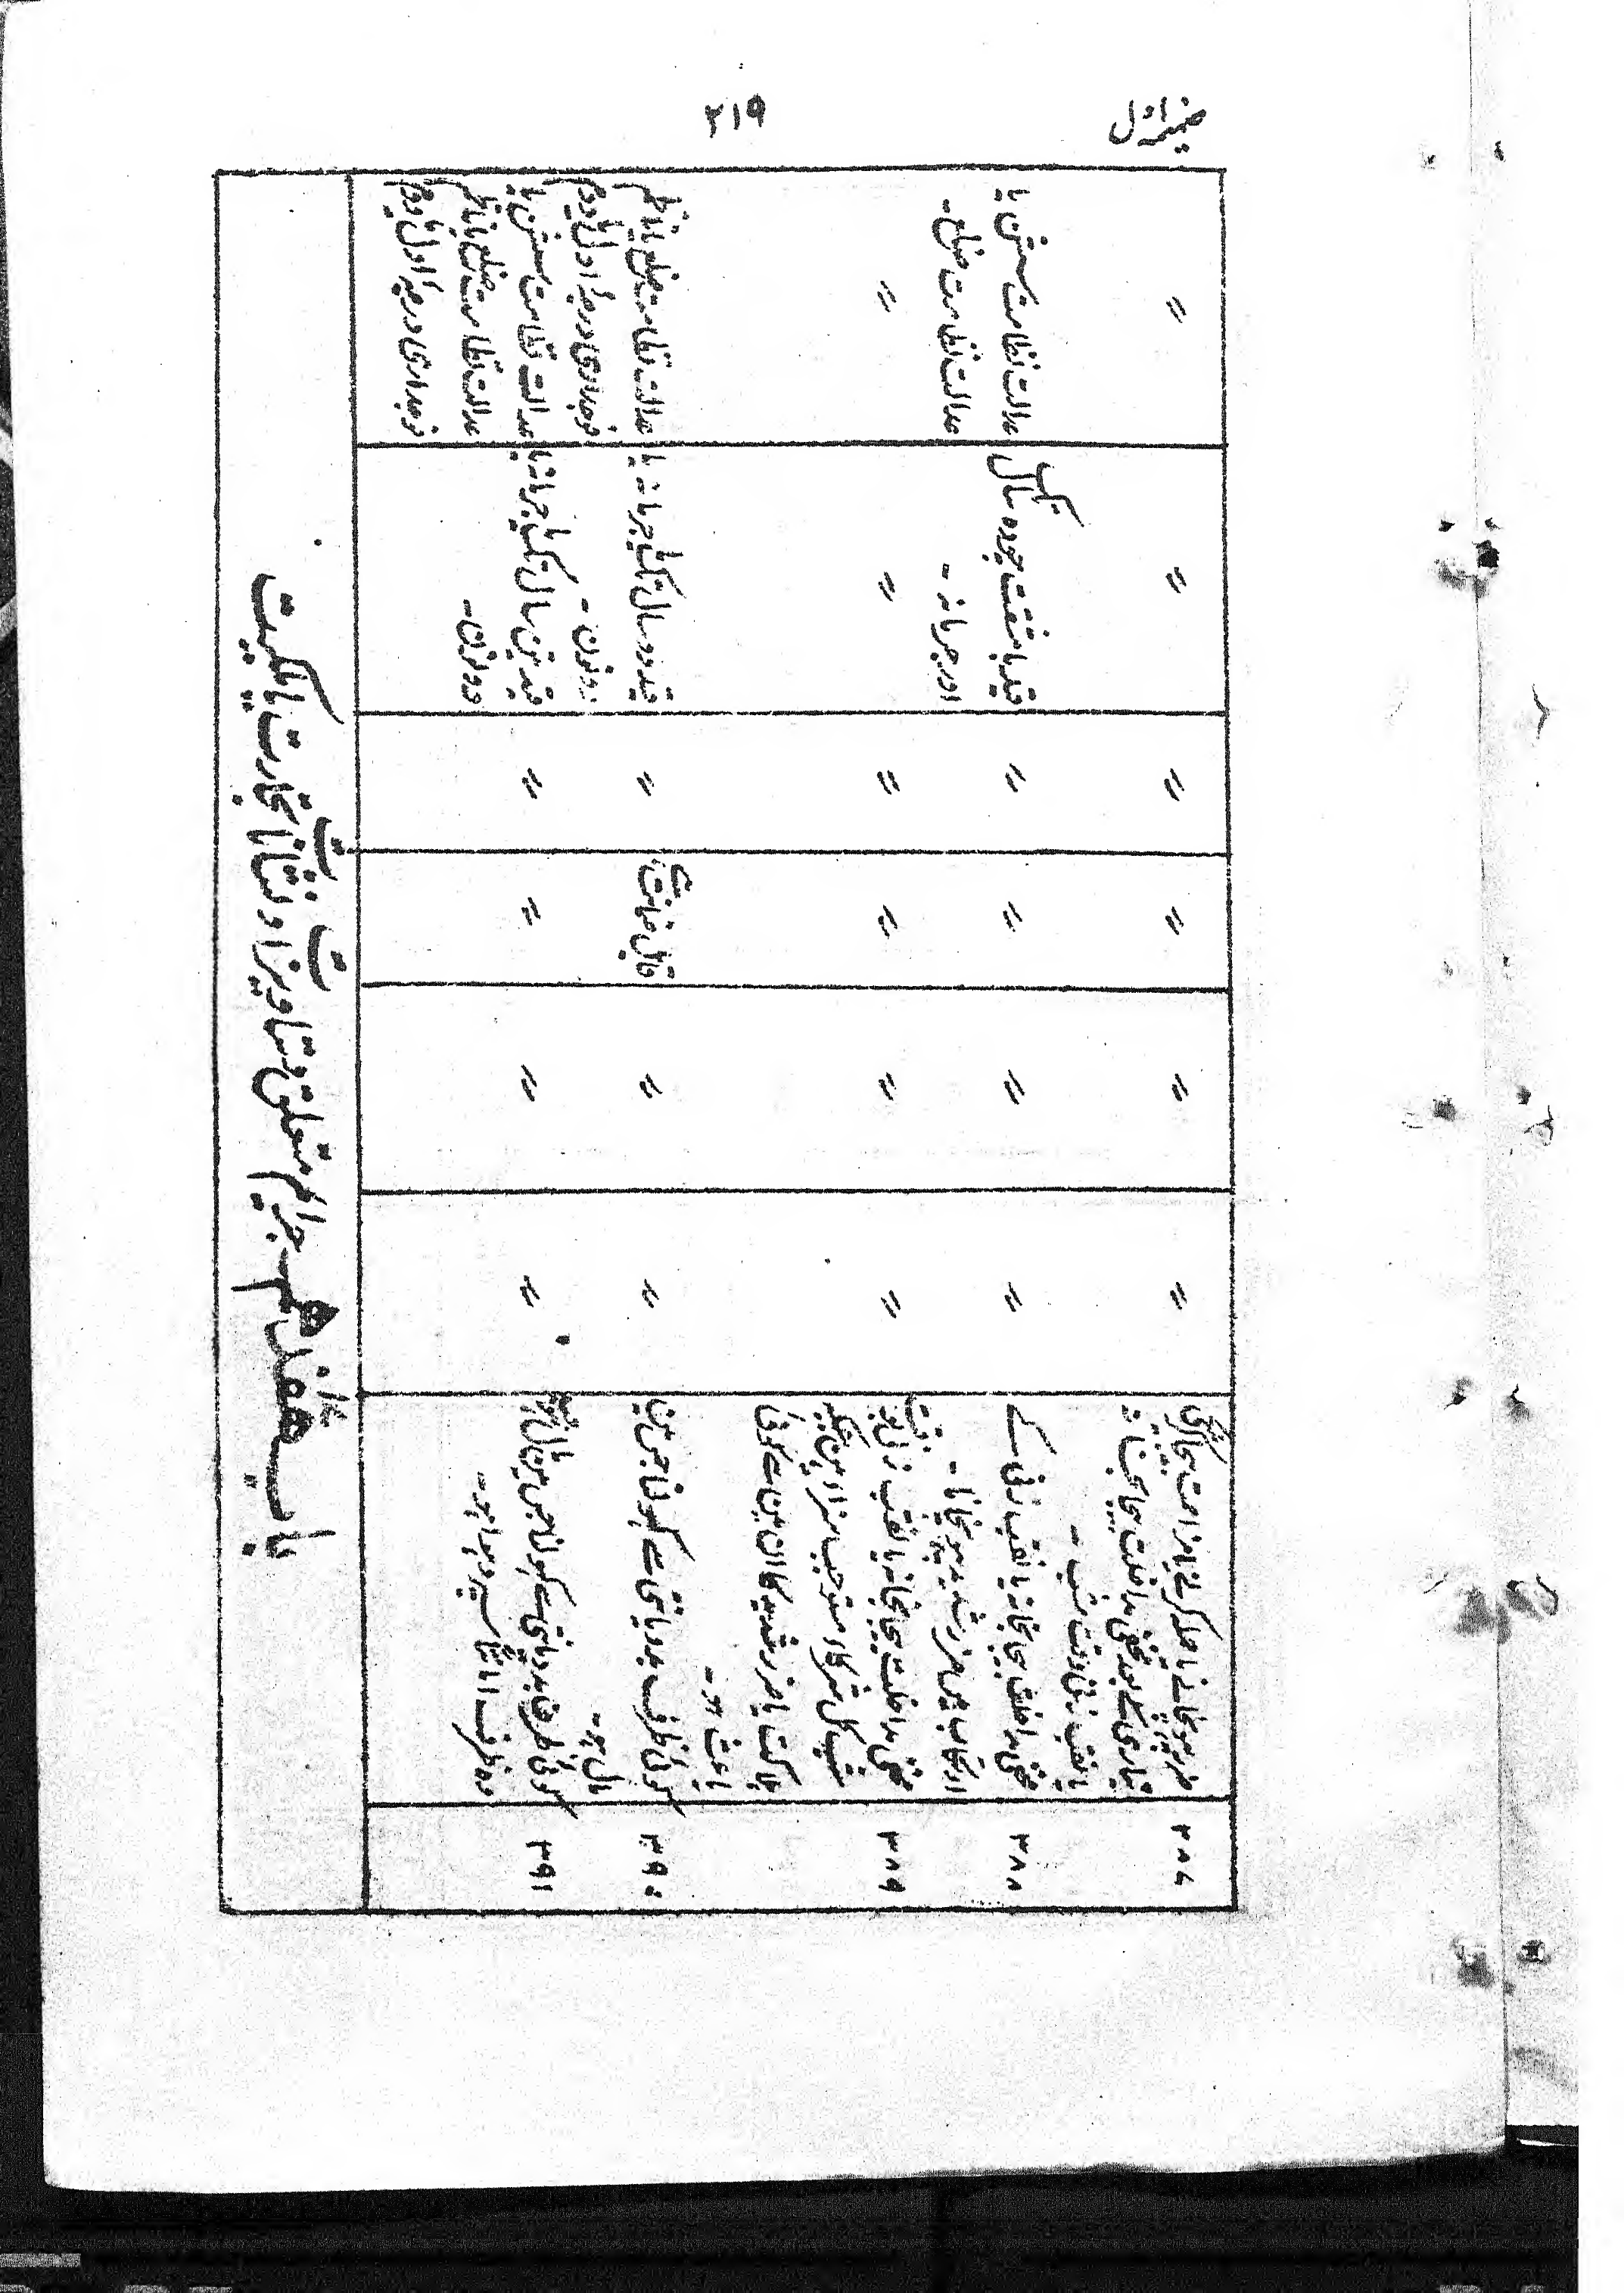 ضمیمہ اول
۲۱۹
۳۸۷
ضرر پہونچانے یا حملہ کرنے یا مزاحمت بیجا کرنیکی
تیاری کے بعد مخفی مداخلت بیجا بخانہ
یا نقب زنی وقت شب -
〃
〃
〃
〃
〃
〃
۳۸۸
مخفی مداخلت بیجا بخانہ یا نقب زنی کے
ارتکاب میں ضرر شدید پہونچانا -
〃
〃
〃
〃
قید با مشقت چودہ سال تک
اور جرمانہ -
عدالت نظامت سشن یا
عدالت نظامت ضلع -
۳۸۹
مخفی مداخلت بیجا بخانہ یا نقب زنی بوقت
شب کل شرکاء مستوجب سزا ہیں جبکہ
ہلاکت یا ضرر شدید کا ان میں سے کوئی
باعث ہو -
〃
〃
〃
〃
〃
〃
۳۹۰
کوئی ظرف بددیانتی سے کھولنا جس میں
مال ہو -
〃
〃
قابل ضمانت ہے
〃
قید دو سال تک یا جرمانہ یا
دونوں -
عدالت نظامت ضلع یا ناظم
فوجداری درجہ اول یا دوم
۳۹۱
کوئی ظرف بددیانتی سے کھولنا جس میں مال ہو جبکہ
وہ ظرف امانتاً سپرد ہوا ہو -
〃
〃
〃
〃
قید تین سال تک یا جرمانہ یا
دونوں -
عدالت نظامت سشن یا
عدالت نظامت ضلع یا ناظم
فوجداری درجہ اول یا دوم
باب ہفدہم جرائم متعلق دستاویزات و نشانات تجارت یا ملکیت